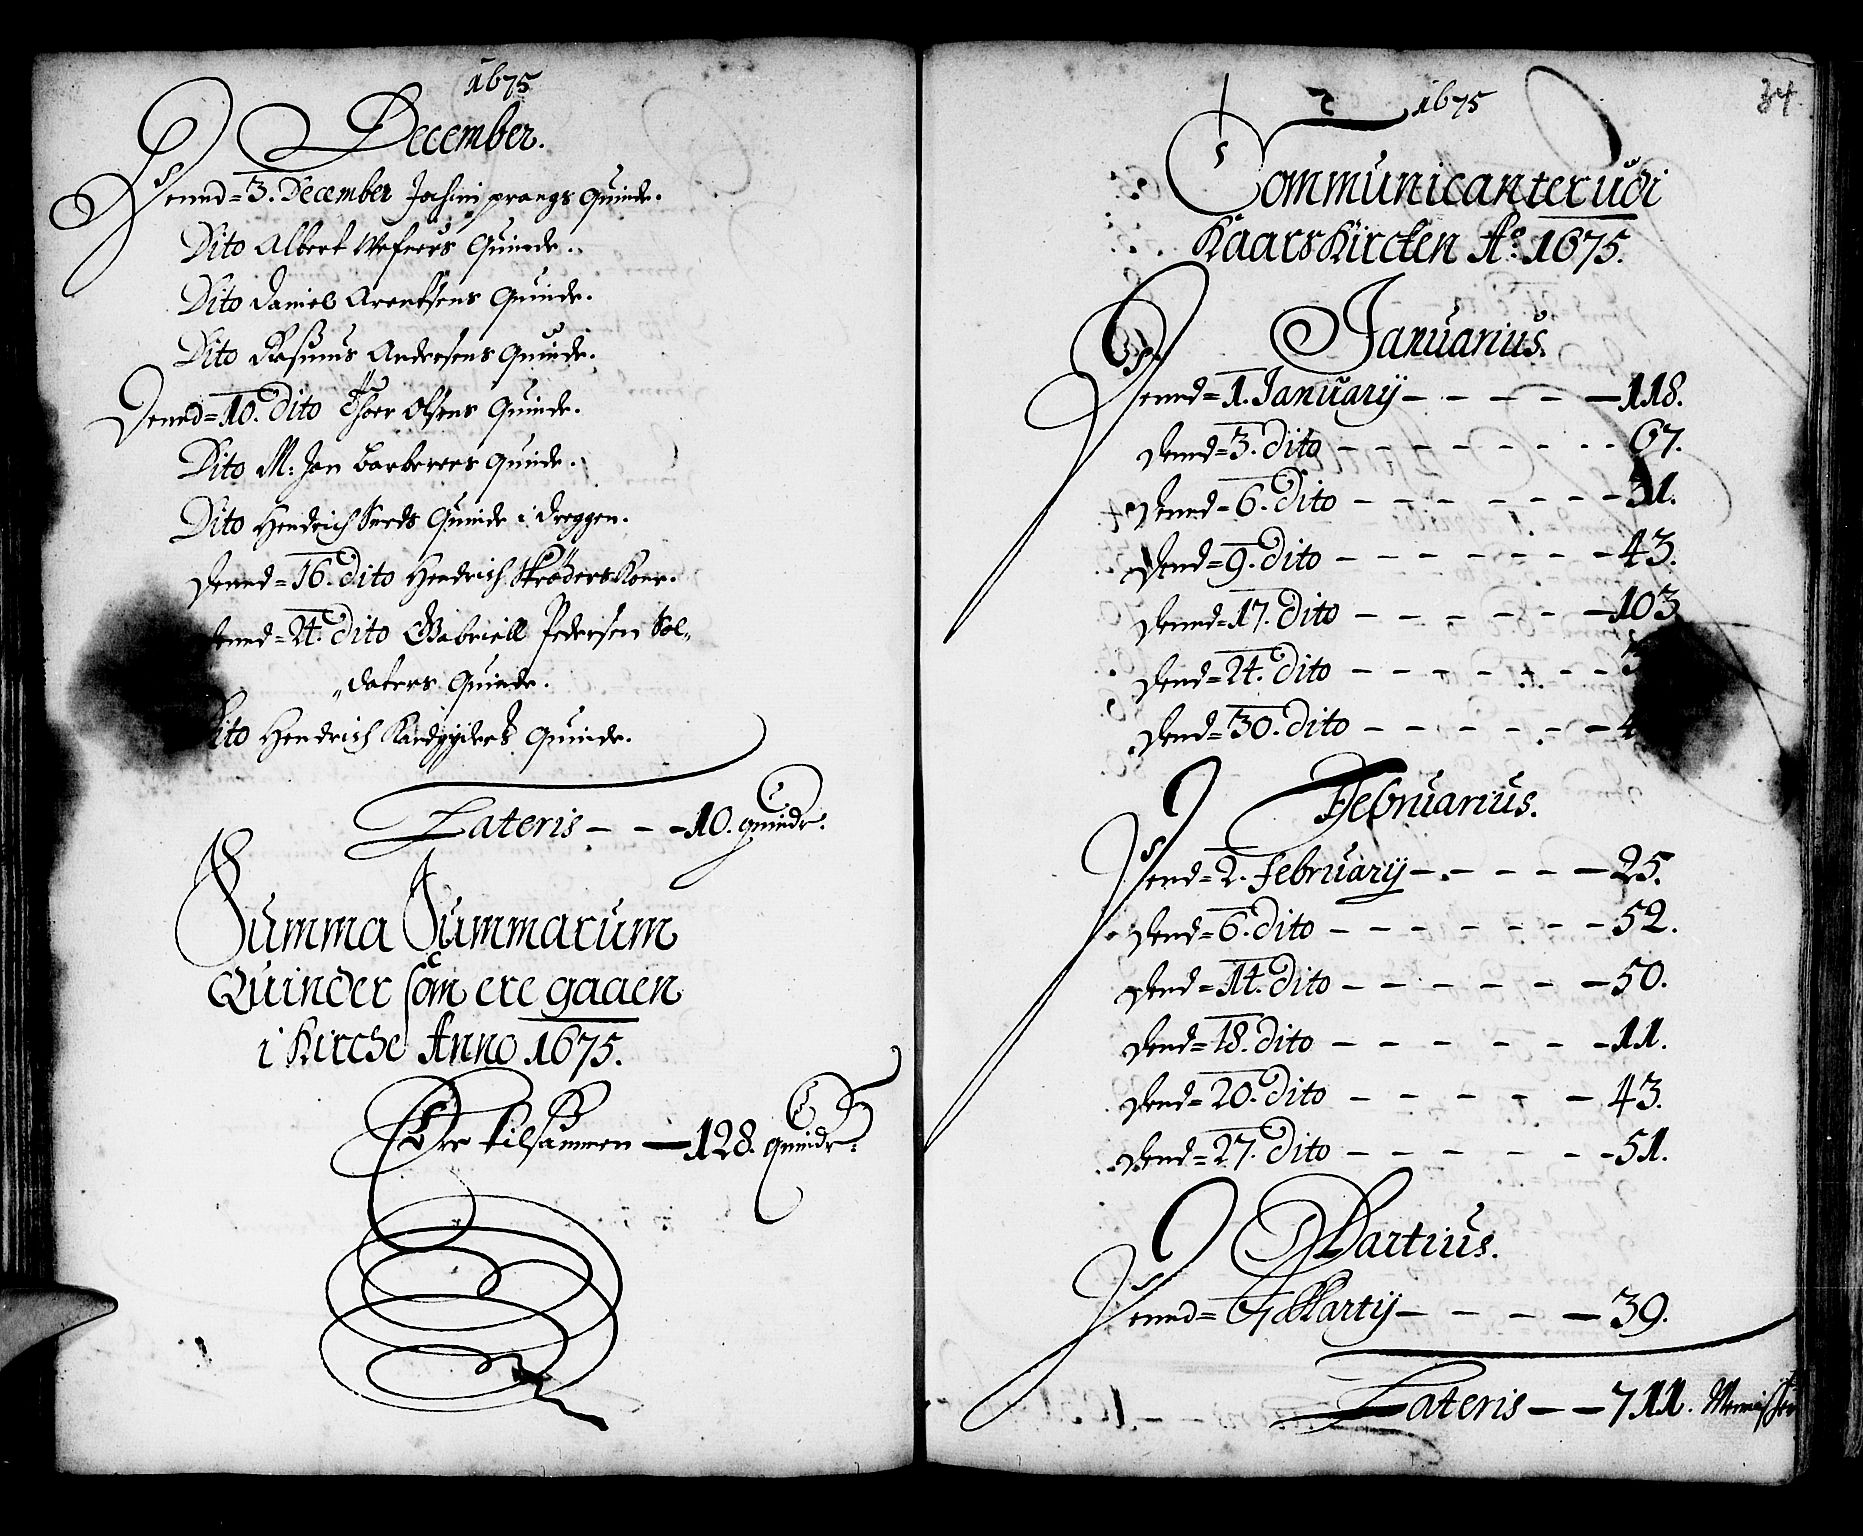 1675
December.
Dennd= 3. December Jochim prangs Quinde.
Dito Albert Wefvers Quinde.
Dito Daniel Arentsens Quinde.
Dito Rasmus Andersens Quinde.
Dennd= 10. Dito Thoer Olsens Quinde.
Dito M: Jan Barberers Quinde.
Dito Hendrich Suerds Quinde i Dreggen.
Dennd= 16. Dito Hendrich Skrøders Kone.
Dennd= 24. Dito Gabriell Pedersen Sol„
„daters Quinde.
Dito Hendrich Quinde.
Lateris - - - 10. quindr.
Summa Summarum
Quinder som ere gaaen
i Kirche Anno 1675.
Ere tilsammen — 128. quindr.
34
1675
Communicanter udi
Kaarskircken Ao. 1675.
Januarius.
Dennd= 1. January - - - - - 118.
Dennd= 3. dito - - - - - - - - 67.
Dennd= 6. Dito - - - - - - - - 31.
Dend= 9. dito - - - - - - - - 43.
Dennd= 17. dito - - - - - - 103
Dend= 24. dito - - - - - -
Dend= 30. dito - - - - - - 4
Februarius.
Dend= 2. February - - - - - 25.
Dend= 6. dito - - - - - - - 52.
Dend= 14. dito - - - - - - 50.
Dend= 18. dito - - - - - - 11.
Dend= 20. dito - - - - - 43.
Dend= 27. dito - - - - - - 51.
Martius.
Dennd= Marty - - - - 39.
Lateris - - 711. Mennisker